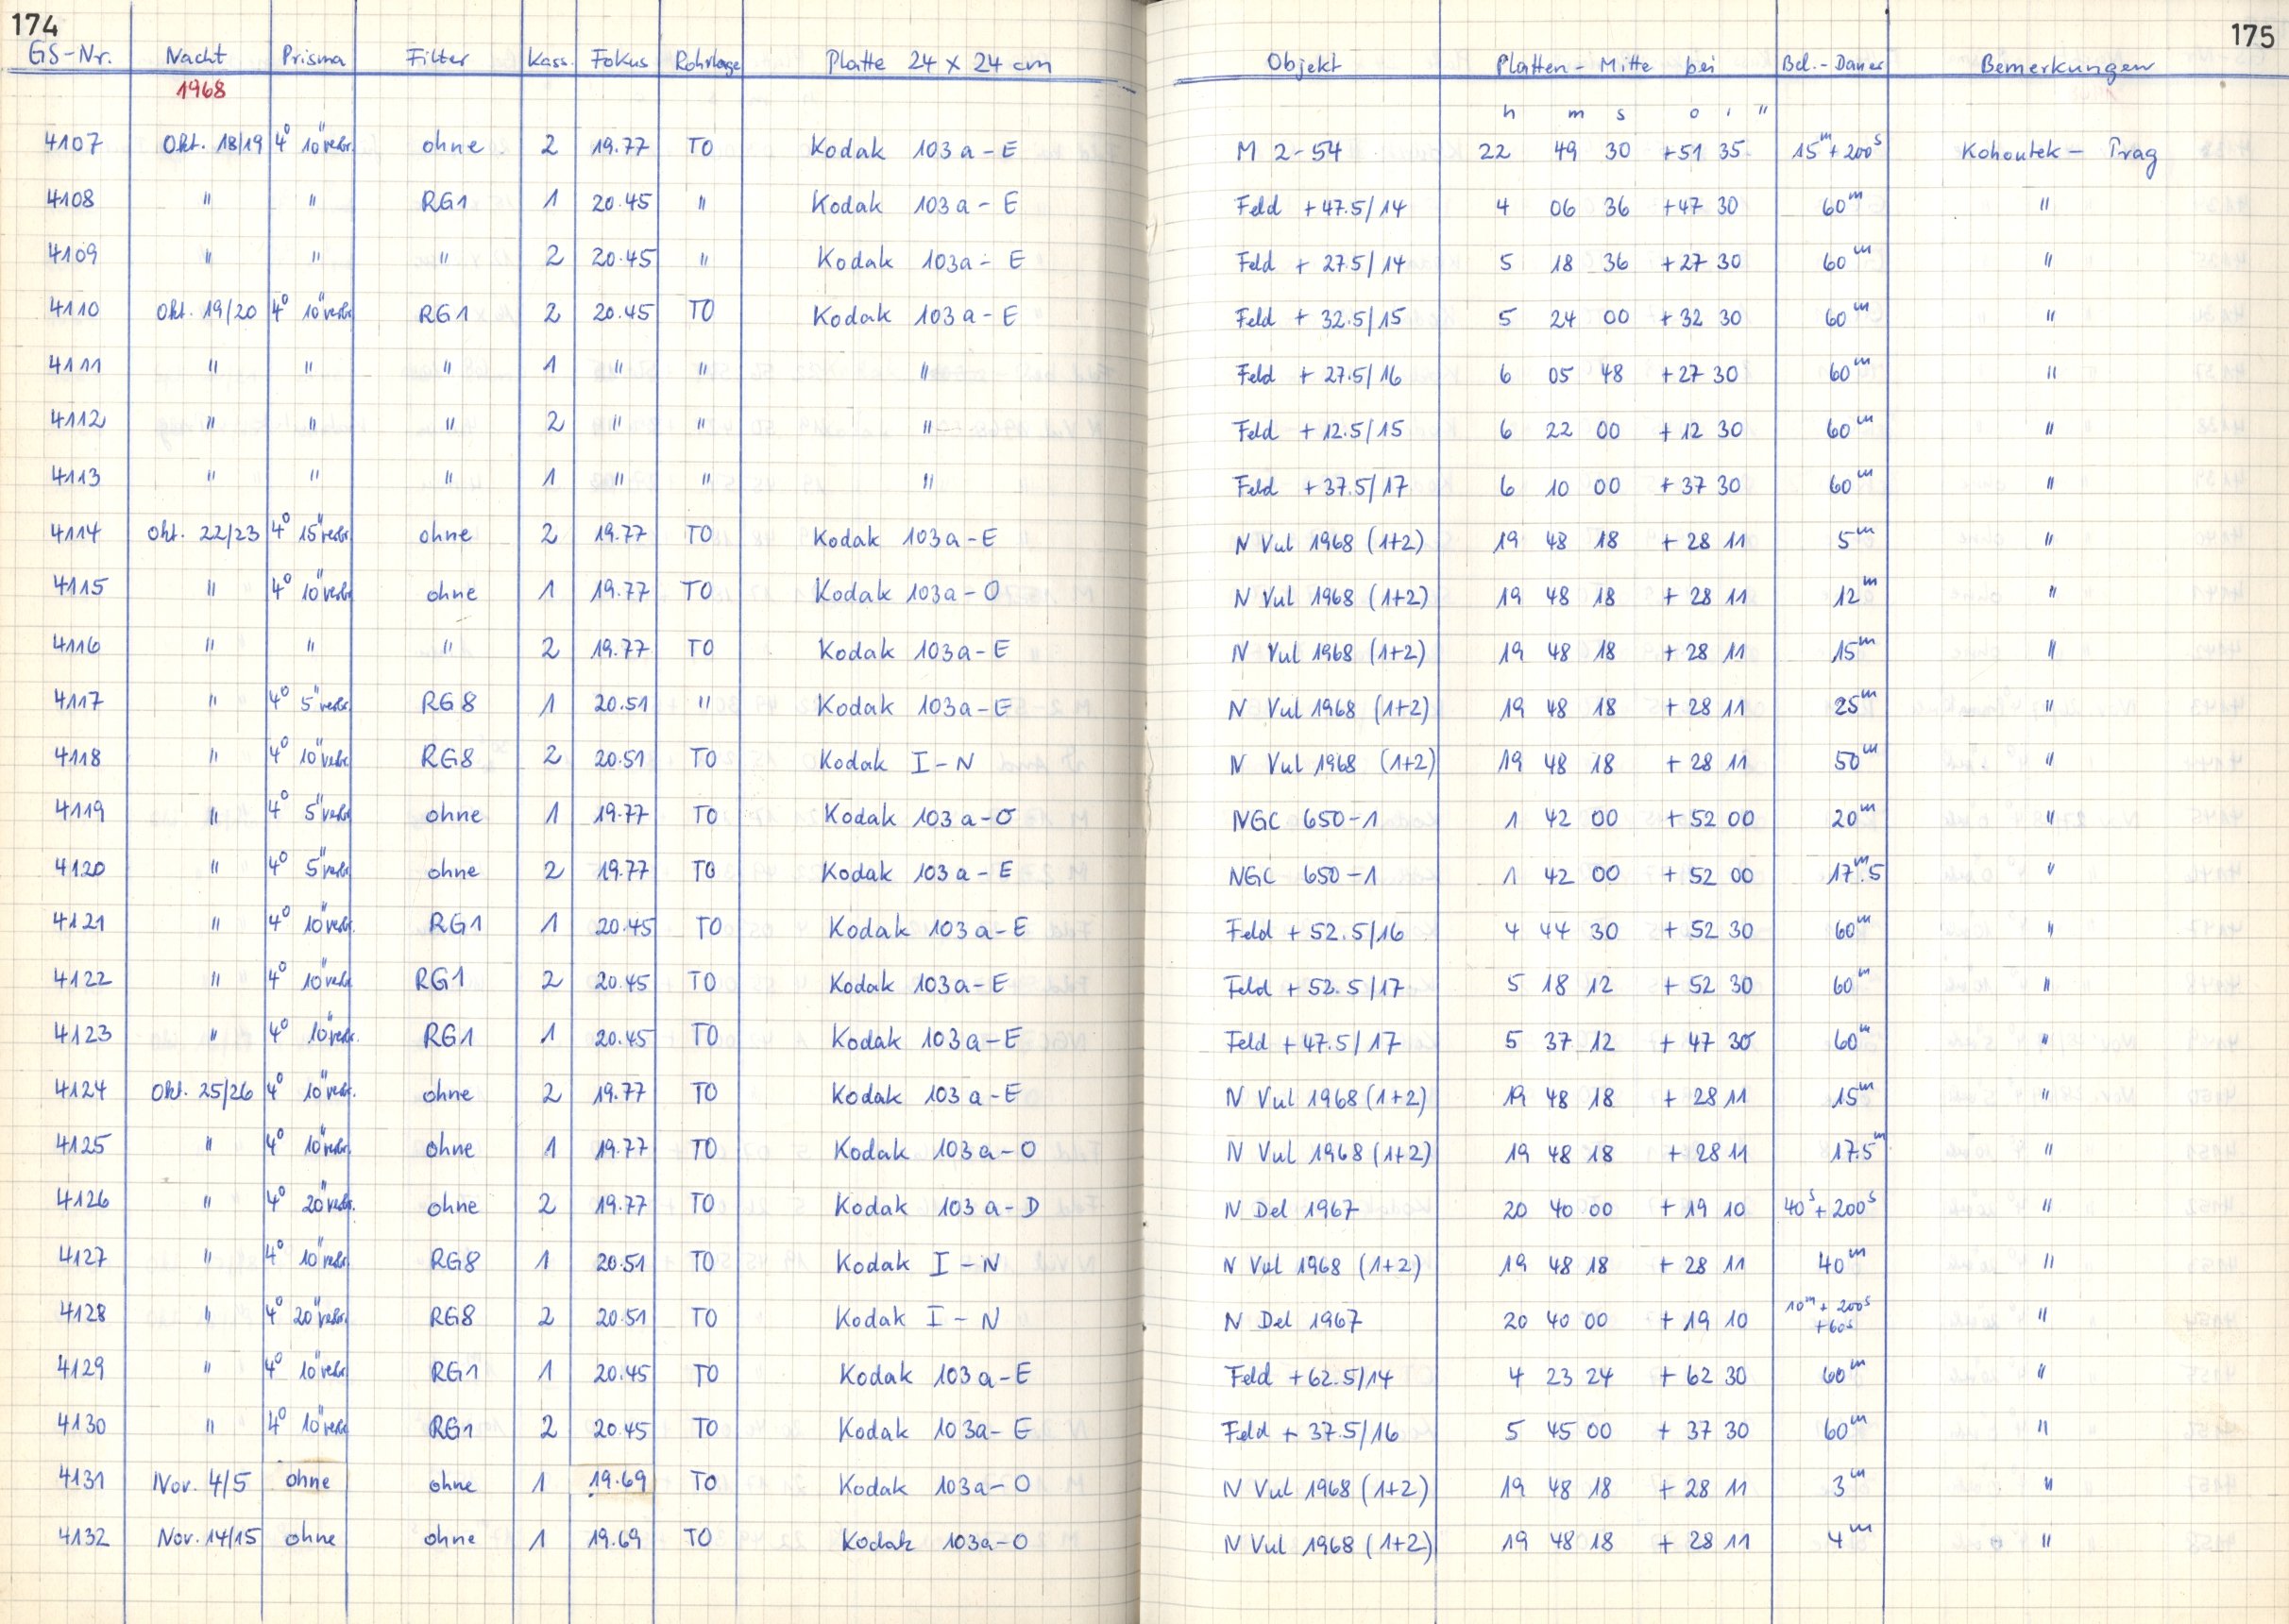 174 175
GS-Nr. Nacht Prisma Filter Kass. Fokus Rohrlage Platte 24 x 24 cm Objekt Platten - Mitte bei Bel.-Dauer Bemerkungen
1968
h m s o ' "
4107 Okt. 18/19 4° 10" verbr. ohne 2 19.77 TO Kodak 103a-E M 2-54 22 49 30 +51 35 15m + 200s Kohoutek - Prag
4108 " " RG1 1 20.45 " Kodak 103a-E Feld +47.5/14 4 06 36 +47 30 60m "
4109 " " " 2 20.45 " Kodak 103a-E Feld + 27.5/14 5 18 36 +27 30 60m "
4110 Okt. 19/20 4° 10" verbr RG1 2 20.45 TO Kodak 103a-E Feld + 32.5/15 5 24 00 +32 30 60m "
4111 " " " 1 " " " Feld + 27.5/16 6 05 48 +27 30 60m "
4112 " " " 2 " " " Feld + 12.5/15 6 22 00 +12 30 60m "
4113 " " " 1 " " " Feld +37.5/17 6 10 00 +37 30 60m "
4114 Okt. 22/23 4° 15" verbr. ohne 2 19.77 TO Kodak 103a-E N Vul 1968 (1+2) 19 48 18 + 28 11 5m "
4115 " 4° 10" verbr ohne 1 19.77 TO Kodak 103a-O N Vul 1968 (1+2) 19 48 18 + 28 11 12m "
4116 " " " 2 19.77 TO Kodak 103a-E N Vul 1968 (1+2) 19 48 18 + 28 11 15m "
4117 " 4° 5" verbr RG8 1 20.51 " Kodak 103a-E N Vul 1968 (1+2) 19 48 18 + 28 11 25m "
4118 " 4° 10" verbr RG8 2 20.51 TO Kodak I-N N Vul 1968 (1+2) 19 48 18 + 28 11 50m "
4119 " 4° 5" verbr ohne 1 19.77 TO Kodak 103a-O NGC 650-1 1 42 00 + 52 00 20m "
4120 " 4° 5" verbr ohne 2 19.77 TO Kodak 103a-E NGC 650-1 1 42 00 + 52 00 17m.5 "
4121 " 4° 10" verbr. RG1 1 20.45 TO Kodak 103a-E Feld + 52.5/16 4 44 30 + 52 30 60m "
4122 " 4° 10" verbr RG1 2 20.45 TO Kodak 103a-E Feld + 52.5/17 5 18 12 + 52 30 60m "
4123 " 4° 10" verbr. RG1 1 20.45 TO Kodak 103a-E Feld + 47.5/17 5 37 12 + 47 30 60m "
4124 Okt. 25/26 4° 10" verbr. ohne 2 19.77 TO Kodak 103a-E N Vul 1968 (1+2) 19 48 18 + 28 11 15m "
4125 " 4° 10" verbr. ohne 1 19.77 TO Kodak 103a-O N Vul 1968 (1+2) 19 48 18 + 28 11 17.5m "
4126 " 4° 20" verbr. ohne 2 19.77 TO Kodak 103a-D N Del 1967 20 40 00 + 19 10 40s + 200s "
4127 " 4° 10" verbr. RG8 1 20.51 TO Kodak I-N N Vul 1968 (1+2) 19 48 18 + 28 11 40m "
4128 " 4° 20" verbr. RG8 2 20.51 TO Kodak I-N N Del 1967 20 40 00 + 19 10 10m + 200s +60s "
4129 " 4° 10" verbr RG1 1 20.45 TO Kodak 103a-E Feld +62.5/14 4 23 24 + 62 30 60m "
4130 " 4° 10" verbr RG1 2 20.45 TO Kodak 103a-E Feld + 37.5/16 5 45 00 + 37 30 60m "
4131 Nov. 4/5 ohne ohne 1 19.69 TO Kodak 103a-O N Vul 1968 (1+2) 19 48 18 + 28 11 3m "
4132 Nov. 14/15 ohne ohne 1 19.69 TO Kodak 103a-O N Vul 1968 (1+2) 19 48 18 + 28 11 4m "